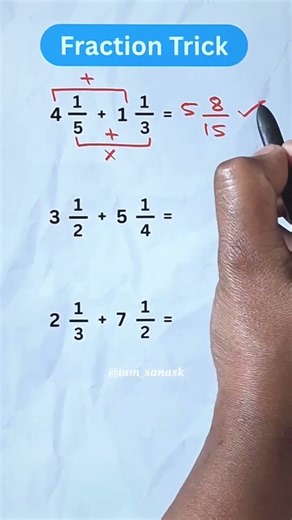 Fraction Trick
+
4 1/5 + 1 1/3 = 5 8/15 ✓
+
×
3 1/2 + 5 1/4 =
2 1/3 + 7 1/2 =
@iam_sanask